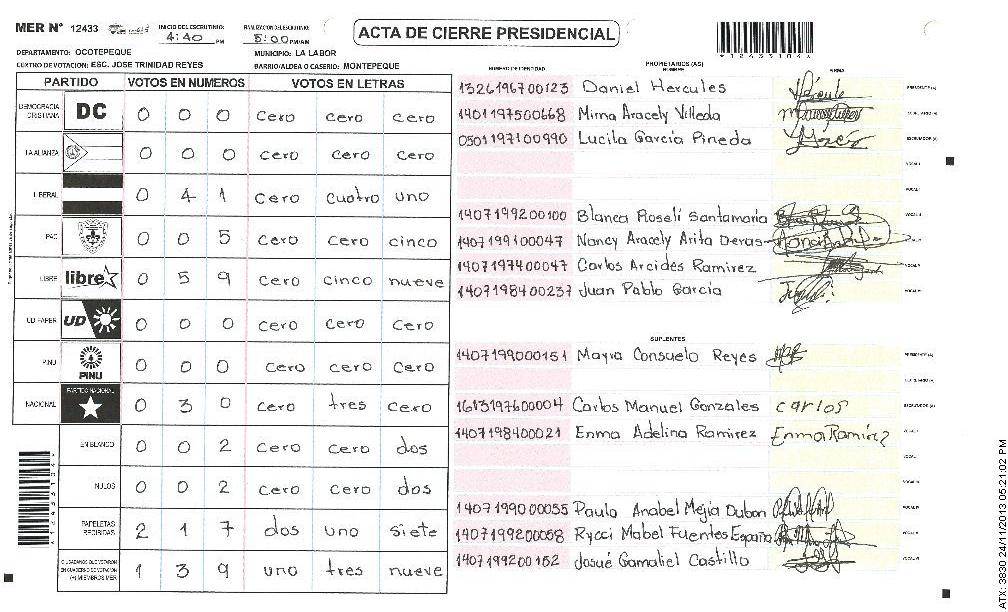 MER Nº 12433
INICIO DEL ESCRUTINIO: 4:40 PM
FINALIZACION DEL ESCRUTINIO: 5:00 PM/AM
ACTA DE CIERRE PRESIDENCIAL
DEPARTAMENTO: OCOTEPEQUE
MUNICIPIO: LA LABOR
CENTRO DE VOTACION: ESC. JOSE TRINIDAD REYES
BARRIO/ALDEA O CASERIO: MONTEPEQUE
PARTIDO VOTOS EN NUMEROS VOTOS EN LETRAS
DEMOCRACIA CRISTIANA DC 0 0 0 cero cero cero
LA ALIANZA 0 0 0 cero cero cero
LIBERAL 0 4 1 cero cuatro uno
PAC 0 0 5 cero cero cinco
LIBRE libre 0 5 9 cero cinco nueve
UD FAPER UD 0 0 0 cero cero cero
PINU PINU 0 0 0 cero cero cero
NACIONAL PARTIDO NACIONAL 0 3 0 cero tres cero
EN BLANCO 0 0 2 cero cero dos
NULOS 0 0 2 cero cero dos
PAPELETAS RECIBIDAS 2 1 7 dos uno siete
CIUDADANOS QUE VOTARON EN CUADERNO DE VOTACION (+) MIEMBROS MER 1 3 9 uno tres nueve
NUMERO DE IDENTIDAD PROPIETARIOS (AS) NOMBRE FIRMA
1326196700123 Daniel Hercules PRESIDENTE (A)
1401197500668 Mirna Aracely Villeda SECRETARIO (A)
0501197100990 Lucila García Pineda ESCRUTADOR (A)
VOCAL I
VOCAL II
1407199200100 Blanca Roselí Santamaria
1407199100047 Nancy Aracely Arita Deras
1407197400047 Carlos Arcides Ramirez
1407198400237 Juan Pablo García
SUPLENTES
1407199000151 Mayra Consuelo Reyes PRESIDENTE (A)
SECRETARIO (A)
1613197600004 Carlos Manuel Gonzales carlos ESCRUTADOR (A)
1407198400021 Enma Adelina Ramirez Enma Ramírez
1407199000055 Paulo Anabel Mejia Dubon
1407199200058 Rycci Mabel Fuentes España
1407199200152 Josué Gamaliel Castillo
*12433104*
ATX: 3830 24/11/2013 05:21:02 PM